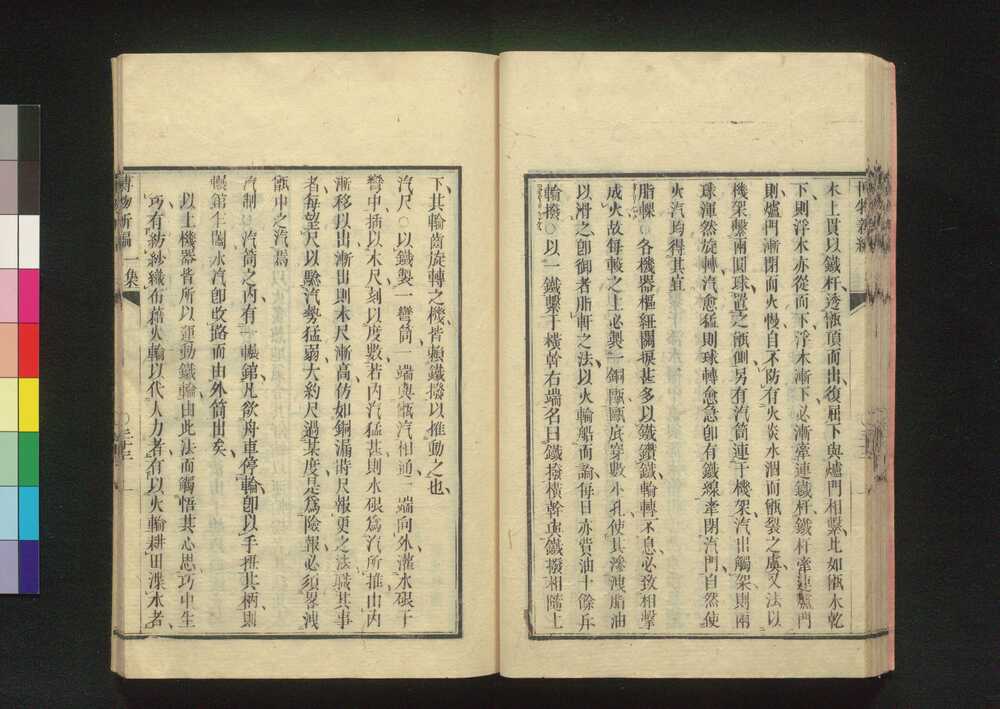 木上貫以鐵杆透甑頂而出復屈下與爐門相繫比如甑水乾
下則浮木亦從而下浮木漸下必漸牽連鐵杆鐵杆牽連爐門
則爐門漸閉而火慢自不防有火炎水涸而甑裂之虞又法以
機架繫兩圓球置之甑側另有汽筒連于機架汽出觸架則兩
球渾然旋轉汽愈猛則球轉愈急卽有鐵線牽閉汽門自然使
火汽均得其宜
脂䑓○各機器樞紐關捩甚多以鐵鑽鐵輪轉不息必致相擊
成火故每軸之上必製一銅甌甌底穿數小孔使其滲洩脂油
以滑之卽御者脂軒之法以火輪船而論每日亦費油十餘斤
輪撥○以一鐵繫于橫幹右端名曰鐵撥橫幹與鐵撥相隨上
下其輪齒旋轉之機皆賴鐵撥以推動之也
汽尺○以鐵製一彎筒一端與甑汽相通一端向外灌水銀于
彎中插以木尺刻以度數若內汽猛甚則水銀爲汽所推由內
漸移以出漸出則木尺漸高彷如銅漏時尺報更之法職其事
者每望尺以驗汽勢猛弱大約尺過某度是爲險報必須畧洩
甑中之汽焉
汽制○汽筒之內有一輾錧凡欲舟車停輪卽以手扭其柄則
輾錧半闔水汽卽改路而由外筒出矣
以上機器皆所以運動鐵輪由此法而觸悟其心思巧中生
巧有紡紗織布藉火輪以代人力者有以火輪耕田渫水者
博物新編 一集